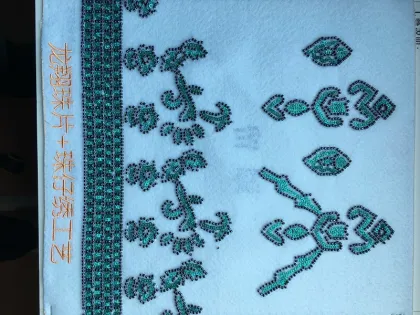 龙眼珠片+珠仔绣工艺